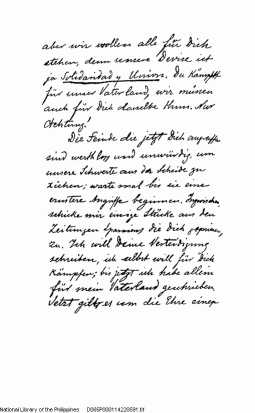 aber wir wollen alle für Dich
stehen, denn unsere Devise ist
ja Solidaridad y Union. Du kämpfst
für unser Vaterland, wir müssen
auch für Dich dasselbe thun. Nur
Achtung!
Die Feinde die jetzt Dich angreifen
sind werthlos und unwürdig, um
unsere Schwerte aus der Scheide zu
ziehen; warte mal bis sie eine
ernstere Angriffe beginnen. Inzwischen
schicke mir einige Stücke aus den
Zeitungen Spaniens die Dich
zu. Ich will Deine Verteidigung
schreiben, ich selbst will für Dich
kämpfen; bis jetzt ich habe allein
für mein Vaterland geschrieben
Jetzt gilt es um die Ehre eines
National Library of the Philippines D005F000114220591.tif